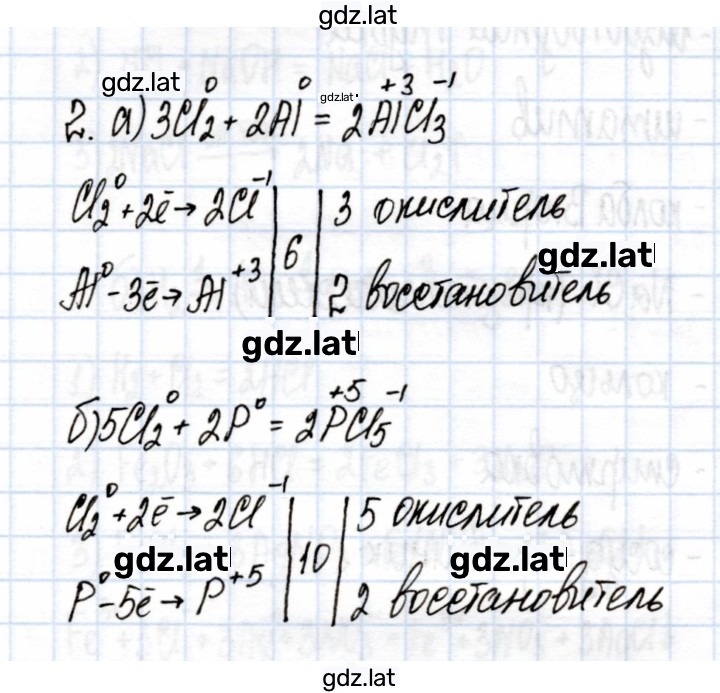 gdz.lat
gdz.lat
2. а) 3Cl₂⁰ + 2Al⁰ = 2Al⁺³Cl₃⁻¹
gdz.lat
Cl₂⁰ + 2ē → 2Cl⁻¹ | 6 | 3 окислитель
gdz.lat
Al⁰ - 3ē → Al⁺³ | | 2 восстановитель
gdz.lat
б) 5Cl₂⁰ + 2P⁰ = 2P⁺⁵Cl₅⁻¹
Cl₂⁰ + 2ē → 2Cl⁻¹ | 10 | 5 окислитель
gdz.lat gdz.lat
P⁰ - 5ē → P⁺⁵ | | 2 восстановитель
gdz.lat